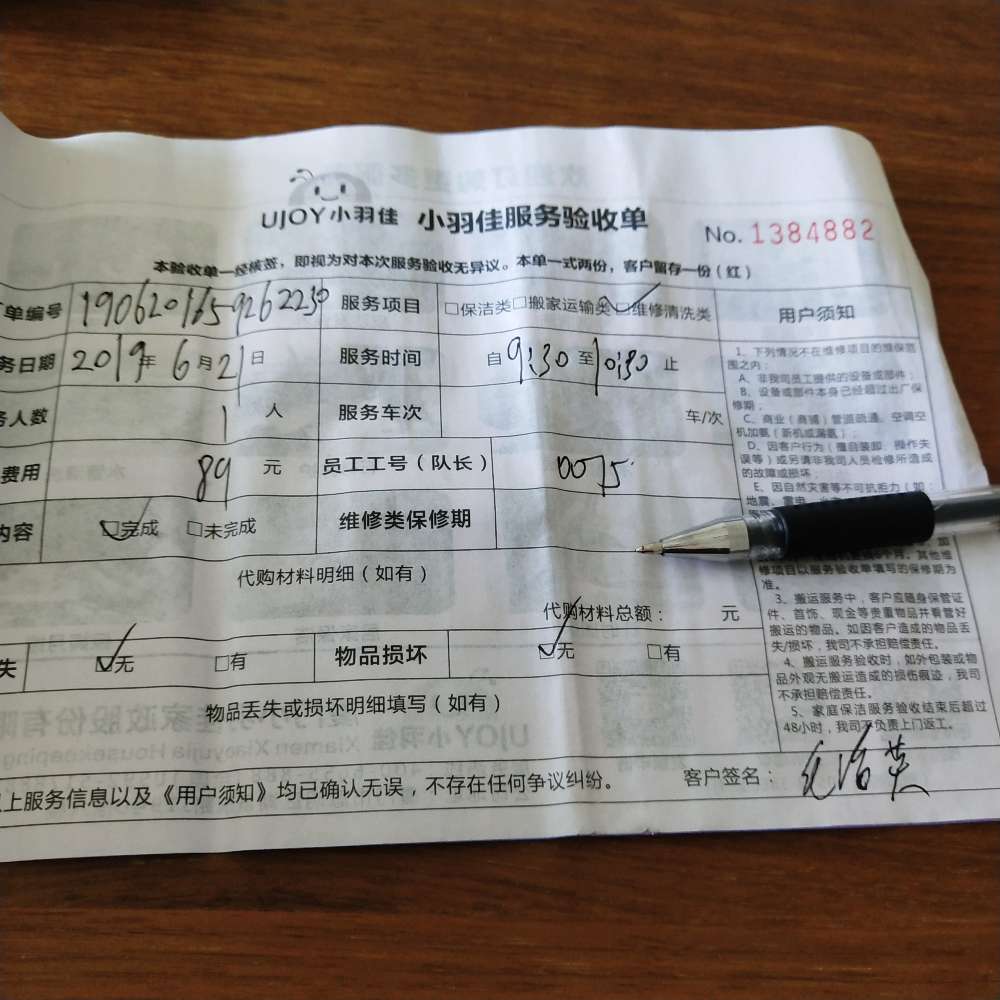 UJOY小羽佳 小羽佳服务验收单 No. 1384882
本验收单一经核签，即视为对本次服务验收无异议。本单一式两份，客户留存一份（红）
单编号 1906201659262230 服务项目 □保洁类□搬家运输类☑维修清洗类 用户须知
务日期 2019年6月21日 服务时间 自9:30至10:30止
务人数 1人 服务车次 车/次
费用 89元 员工工号（队长） 0075
内容 ☑完成 □未完成 维修类保修期
代购材料明细（如有）
代购材料总额： 元
失 ☑无 □有 物品损坏 ☑无 □有
物品丢失或损坏明细填写（如有）
上服务信息以及《用户须知》均已确认无误，不存在任何争议纠纷。 客户签名：
1、下列情况不在维修项目的维保范
围之内：
A、非我司员工提供的设备或部件；
B、设备或部件本身已经超过出厂保
修期；
C、商业（商铺）管道疏通、空调空
机加氨（新机或漏氨）；
D、因客户行为（擅自装卸、操作失
误等）或另请非我司人员检修所造成
的故障或损坏
E、因自然灾害等不可抗拒力（如：
地震、雷电
其他维
修项目以服务验收单填写的保修期为
准。
3、搬运服务中，客户应随身保管证
件、首饰、现金等贵重物品并看管好
搬运的物品。如因客户造成的物品丢
失/损坏，我司不承担赔偿责任。
4、搬运服务验收时，如外包装或物
品外观无搬运造成的损伤痕迹，我司
不承担赔偿责任。
5、家庭保洁服务验收结束后超过
48小时，我司不负责上门返工。